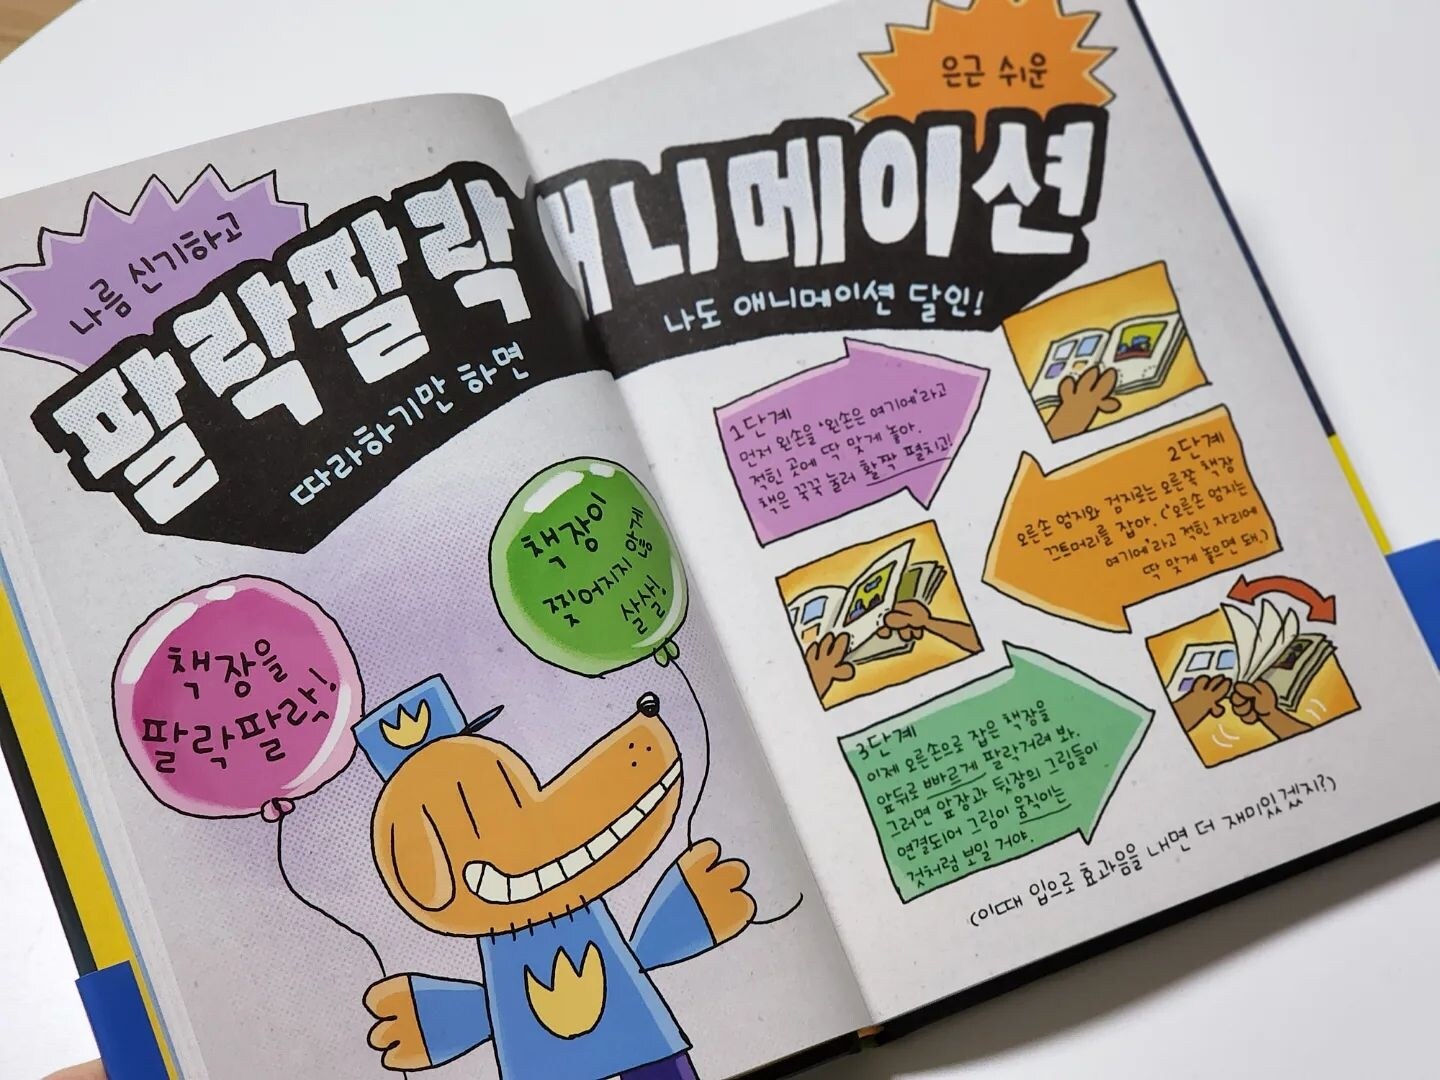 나름 신기하고
팔락팔락
따라하기만 하면
책장을
팔락팔락!
책장이
찢어지지 않게
살살!
은근 쉬운
애니메이션
나도 애니메이션 달인!
1단계
먼저 왼손을 '왼손은 여기에'라고
적힌 곳에 딱 맞게 놓아.
책은 꾹꾹 눌러 활짝 펼치고!
2단계
오른손 엄지와 검지로는 오른쪽 책장
끄트머리를 잡아. ('오른손 엄지는
여기에'라고 적힌 자리에
딱 맞게 놓으면 돼.)
3단계
이제 오른손으로 잡은 책장을
앞뒤로 빠르게 팔락거려 봐.
그러면 앞장과 뒷장의 그림들이
연결되어 그림이 움직이는
것처럼 보일 거야.
(이때 입으로 효과음을 내면 더 재미있겠지?)